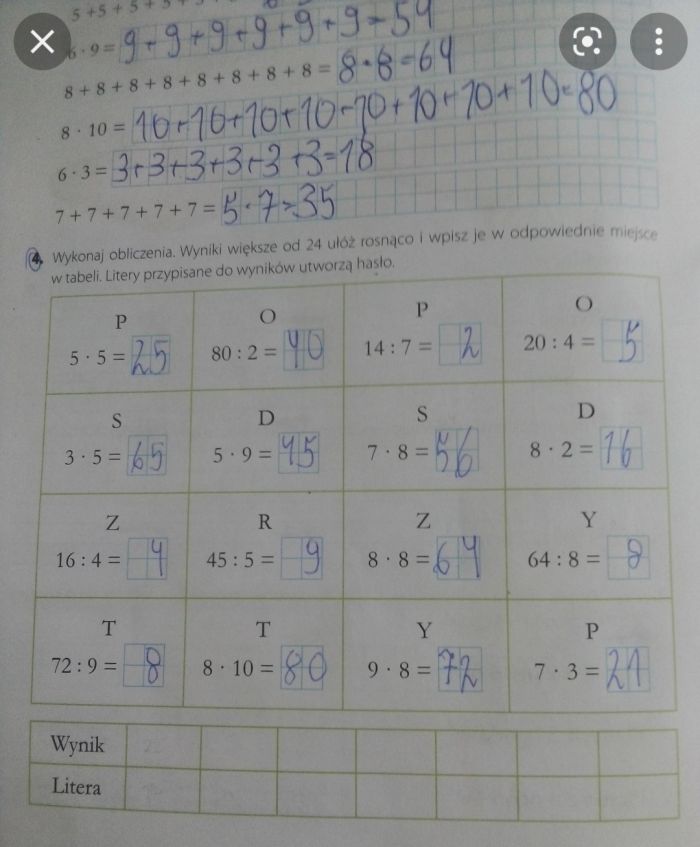 5 + 5 + 5 + 5 +
6 · 9 = 9 + 9 + 9 + 9 + 9 + 9 = 54
8 + 8 + 8 + 8 + 8 + 8 + 8 + 8 = 8 · 8 = 64
8 · 10 = 10 + 10 + 10 + 10 + 10 + 10 + 10 + 10 = 80
6 · 3 = 3 + 3 + 3 + 3 + 3 + 3 = 18
7 + 7 + 7 + 7 + 7 = 5 · 7 = 35
4. Wykonaj obliczenia. Wyniki większe od 24 ułóż rosnąco i wpisz je w odpowiednie miejsce
w tabeli. Litery przypisane do wyników utworzą hasło.
P O P O
5 · 5 = 25 80 : 2 = 40 14 : 7 = 2 20 : 4 = 5
S D S D
3 · 5 = 65 5 · 9 = 45 7 · 8 = 56 8 · 2 = 16
Z R Z Y
16 : 4 = 4 45 : 5 = 9 8 · 8 = 64 64 : 8 = 8
T T Y P
72 : 9 = 8 8 · 10 = 80 9 · 8 = 72 7 · 3 = 21
Wynik
Litera